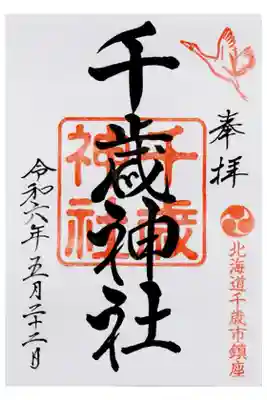 奉拝
北海道千歳市鎮座
千歳神社
千歳神社
令和六年五月二十二日